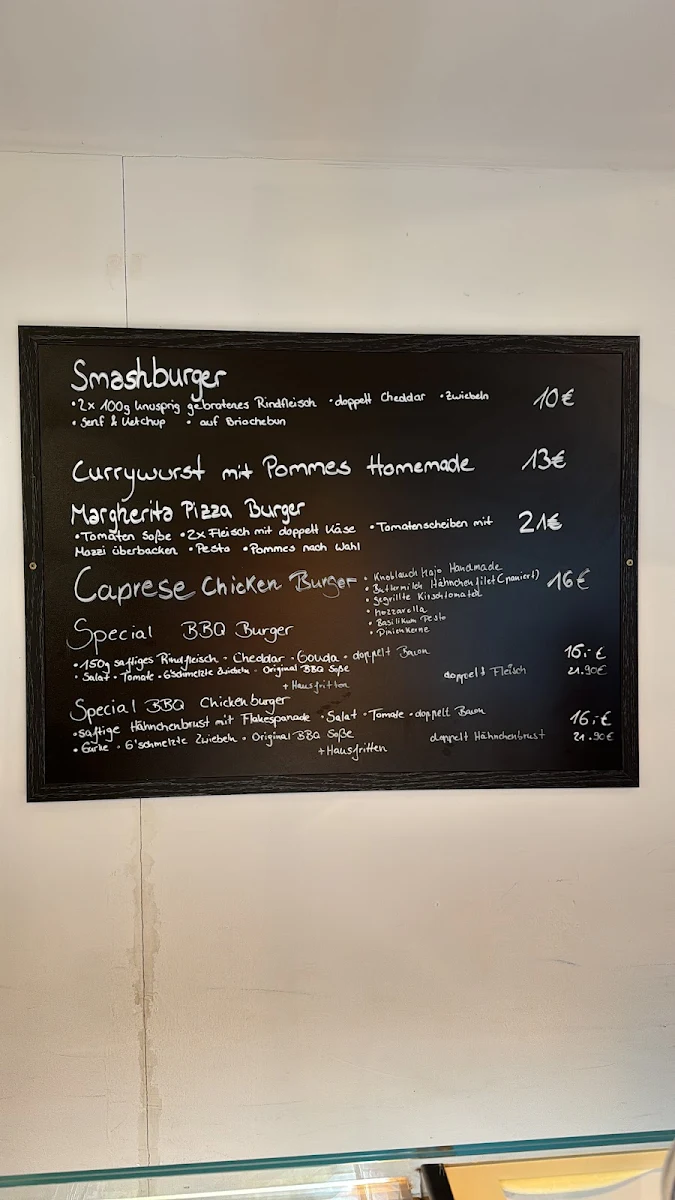 Smashburger
• 2x 100g knusprig gebratenes Rindfleisch • doppelt Cheddar • Zwiebeln
10€
• Senf & Ketchup • auf Briochebun
Currywurst mit Pommes Homemade 13€
Margherita Pizza Burger
• Tomaten Soße • 2x Fleisch mit doppelt Käse • Tomatenscheiben mit 21€
Mozzi überbacken • Pesto • Pommes nach Wahl
Caprese Chicken Burger 16€
• Knoblauch Majo Handmade
• Buttermilch Hähnchenfilet (paniert)
• gegrillte Kirschtomaten
• Mozzarella
• Basilikum Pesto
• Pinienkerne
Special BBQ Burger
• 150g saftiges Rindfleisch • Cheddar • Gouda • doppelt Bacon 16.- €
• Salat • Tomate • G'schmelzte Zwiebeln • Original BBQ Soße
doppelt Fleisch 21.90€
+ Hausfritten
Special BBQ Chickenburger
• saftige Hähnchenbrust mit Flakespanade • Salat • Tomate • doppelt Bacon 16.- €
• Gurke • G'schmelzte Zwiebeln • Original BBQ Soße
doppelt Hähnchenbrust 21.90€
+ Hausfritten